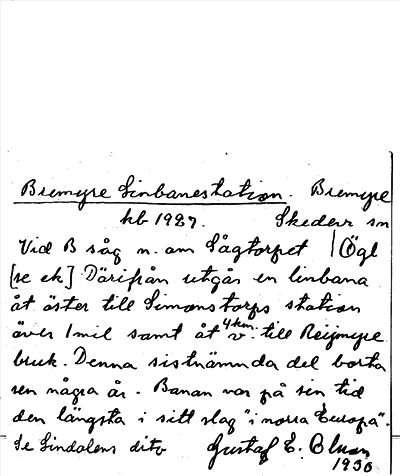 Bremyre Linbanestation. Bremyre
hb 1987. Skedevi sn
Vid B såg n. om Sågtorpet | Ögl
[se ek] Därifrån utgår en linbana
åt öster till Simonstorps station
över 1 mil samt åt v. 4 km. till Reijmyre
bruk. Denna sistnämnda del borta
sen några år. Banan var på sin tid
den längsta i sitt slag "i norra Europa".
Se Lindalens dito Gustaf E. Olson
1930